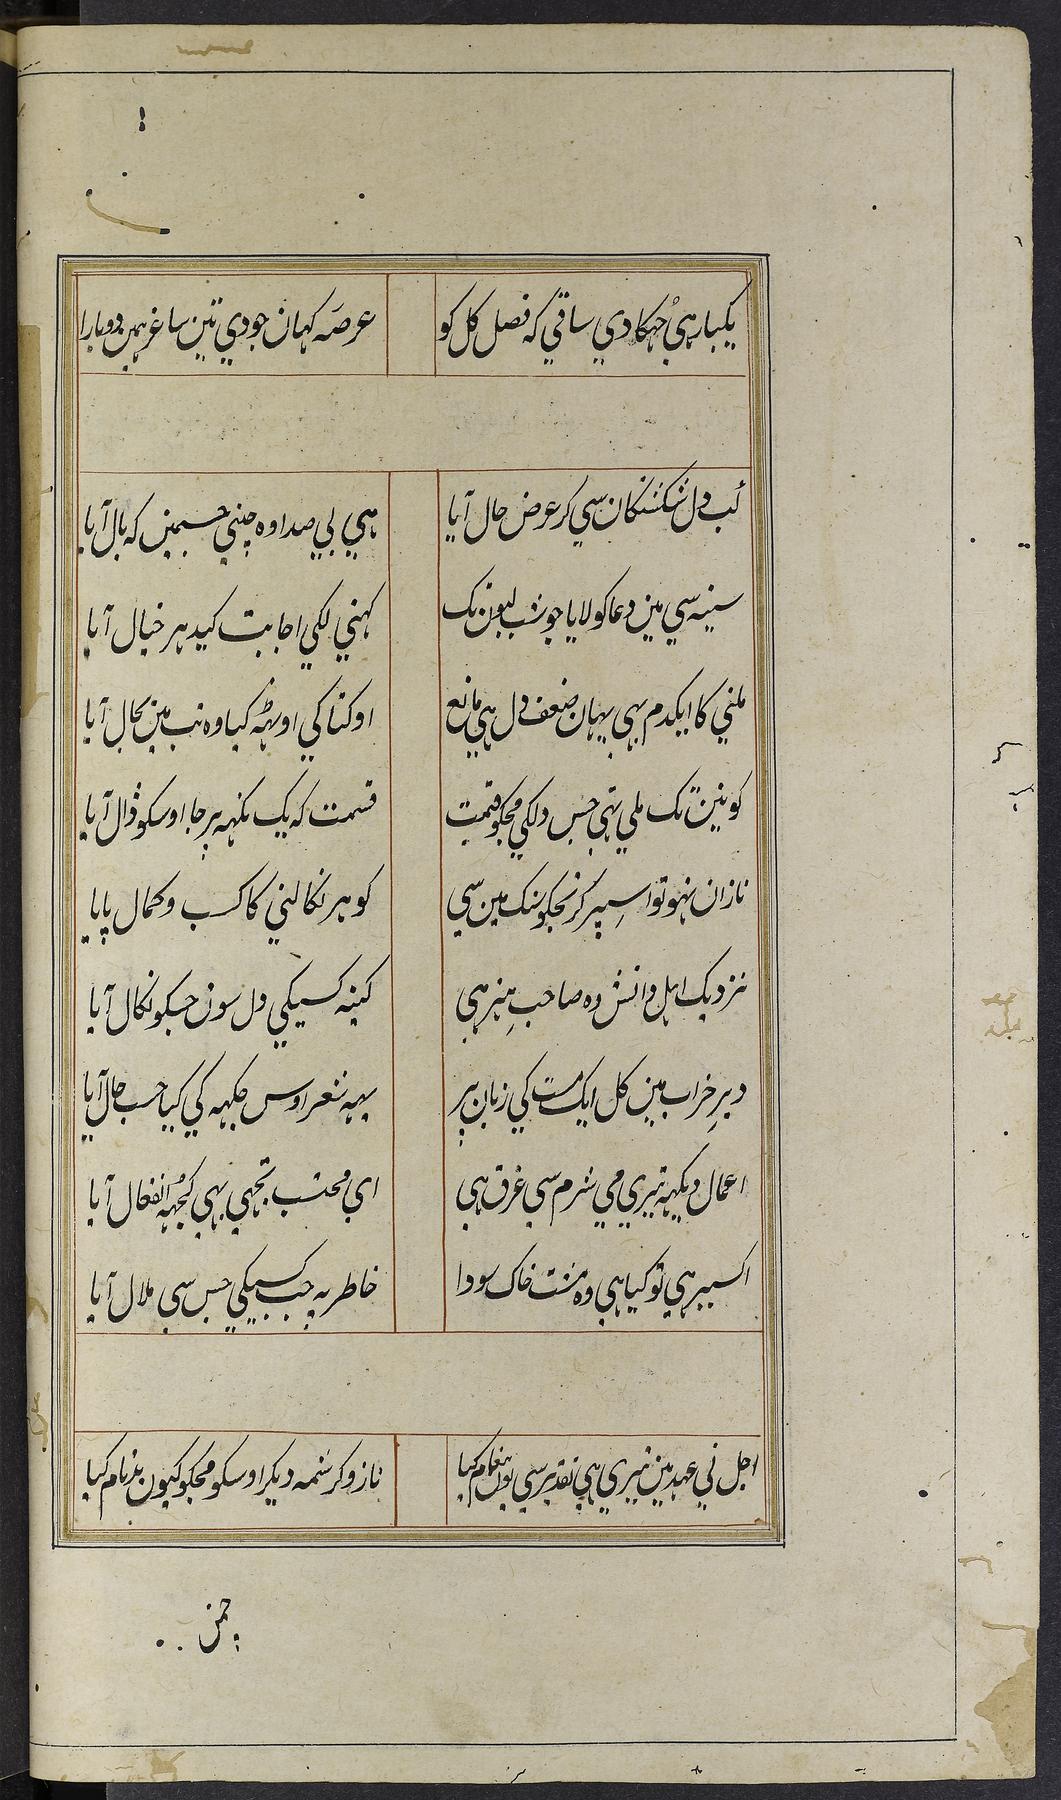 یکبار ہی جہکا دی ساقی کہ فصل کل کو
عرصہ کہان جو دی تین ساغر ہمین دوبارا
کب دل شکستکان سی کر عرض حال آیا
ہی بی صدا وہ چینی جسمین کہ بال آیا
سینہ سی مین دعا کو لایا جو شب لبون تک
کہنی لکی اجابت کیدہر خیال آیا
ملنی کا ایکدم بہی یہان ضعف دل ہی مانع
کیا وہ تب مین بحال آیا
کونین تک ملی تہی جس دلکی مجکو قیمت
قسمت کہ یک نکہہ پر جا اوسکو ڈال آیا
نازان نہو تو اسپر کر تجکو سنک مین سی
کوہر نکالنی کا کسب و کمال پایا
نزدیک اہل دانش وہ صاحب ہنر ہی
کینہ کسیکی دل سون جسکو نکال آیا
دیر خراب مین کل ایک مست کی زبان پر
یہہ شعر اوس جکہہ کی کیا حسب حال آیا
اعمال دیکہہ تیری می شرم سی غرق ہی
ای محتسب تجہی بہی کچہہ انفعال آیا
اکسیر ہی تو کیا ہی وہ مشت خاک سودا
خاطر پہ جب کسیکی جس سی ملال آیا
اجل نی عہد مین تیری ہی تقدیر سی یون پیغام کیا
ناز و کرشمہ دیکر اوسکو مجکو کیون بدنام کیا
چمن